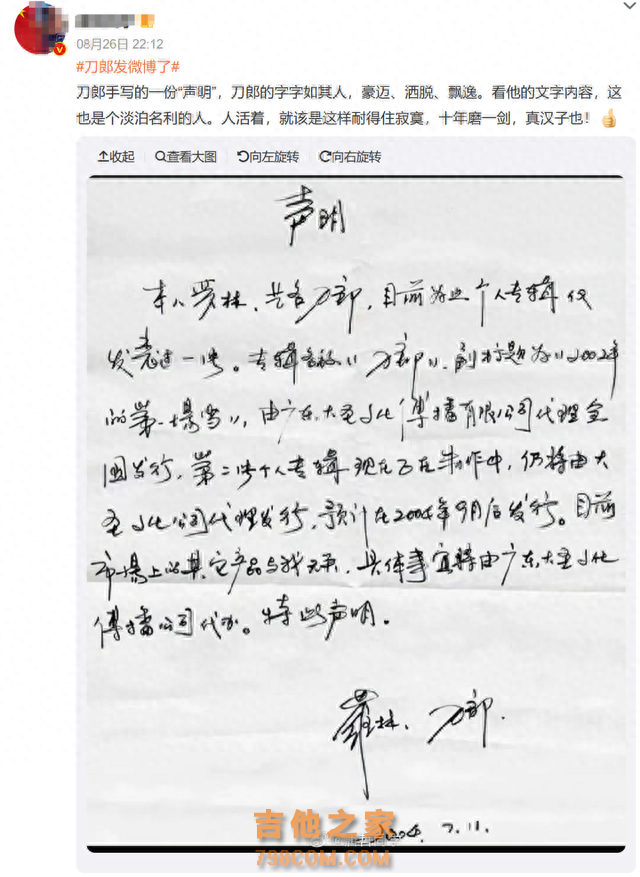 08月26日 22:12
#刀郎发微博了#
刀郎手写的一份“声明”，刀郎的字字如其人，豪迈、洒脱、飘逸。看他的文字内容，这
也是个淡泊名利的人。人活着，就该是这样耐得住寂寞，十年磨一剑，真汉子也！
收起 查看大图 向左旋转 向右旋转
声明
本人罗林，艺名刀郎，目前为止个人专辑仅
发表过一张。专辑名称《刀郎》、副标题为《2002年
的第一场雪》，由广东大圣文化传播有限公司代理全
国发行，第二张个人专辑现在正在制作中，仍将由大
圣文化公司代理发行，预计在2004年9月后发行。目前
市场上的其它产品与我无关，具体事宜将由广东大圣文化
传播公司代办。特此声明。
罗林、刀郎.
2004. 7.11.
吉他之家
798COM.COM